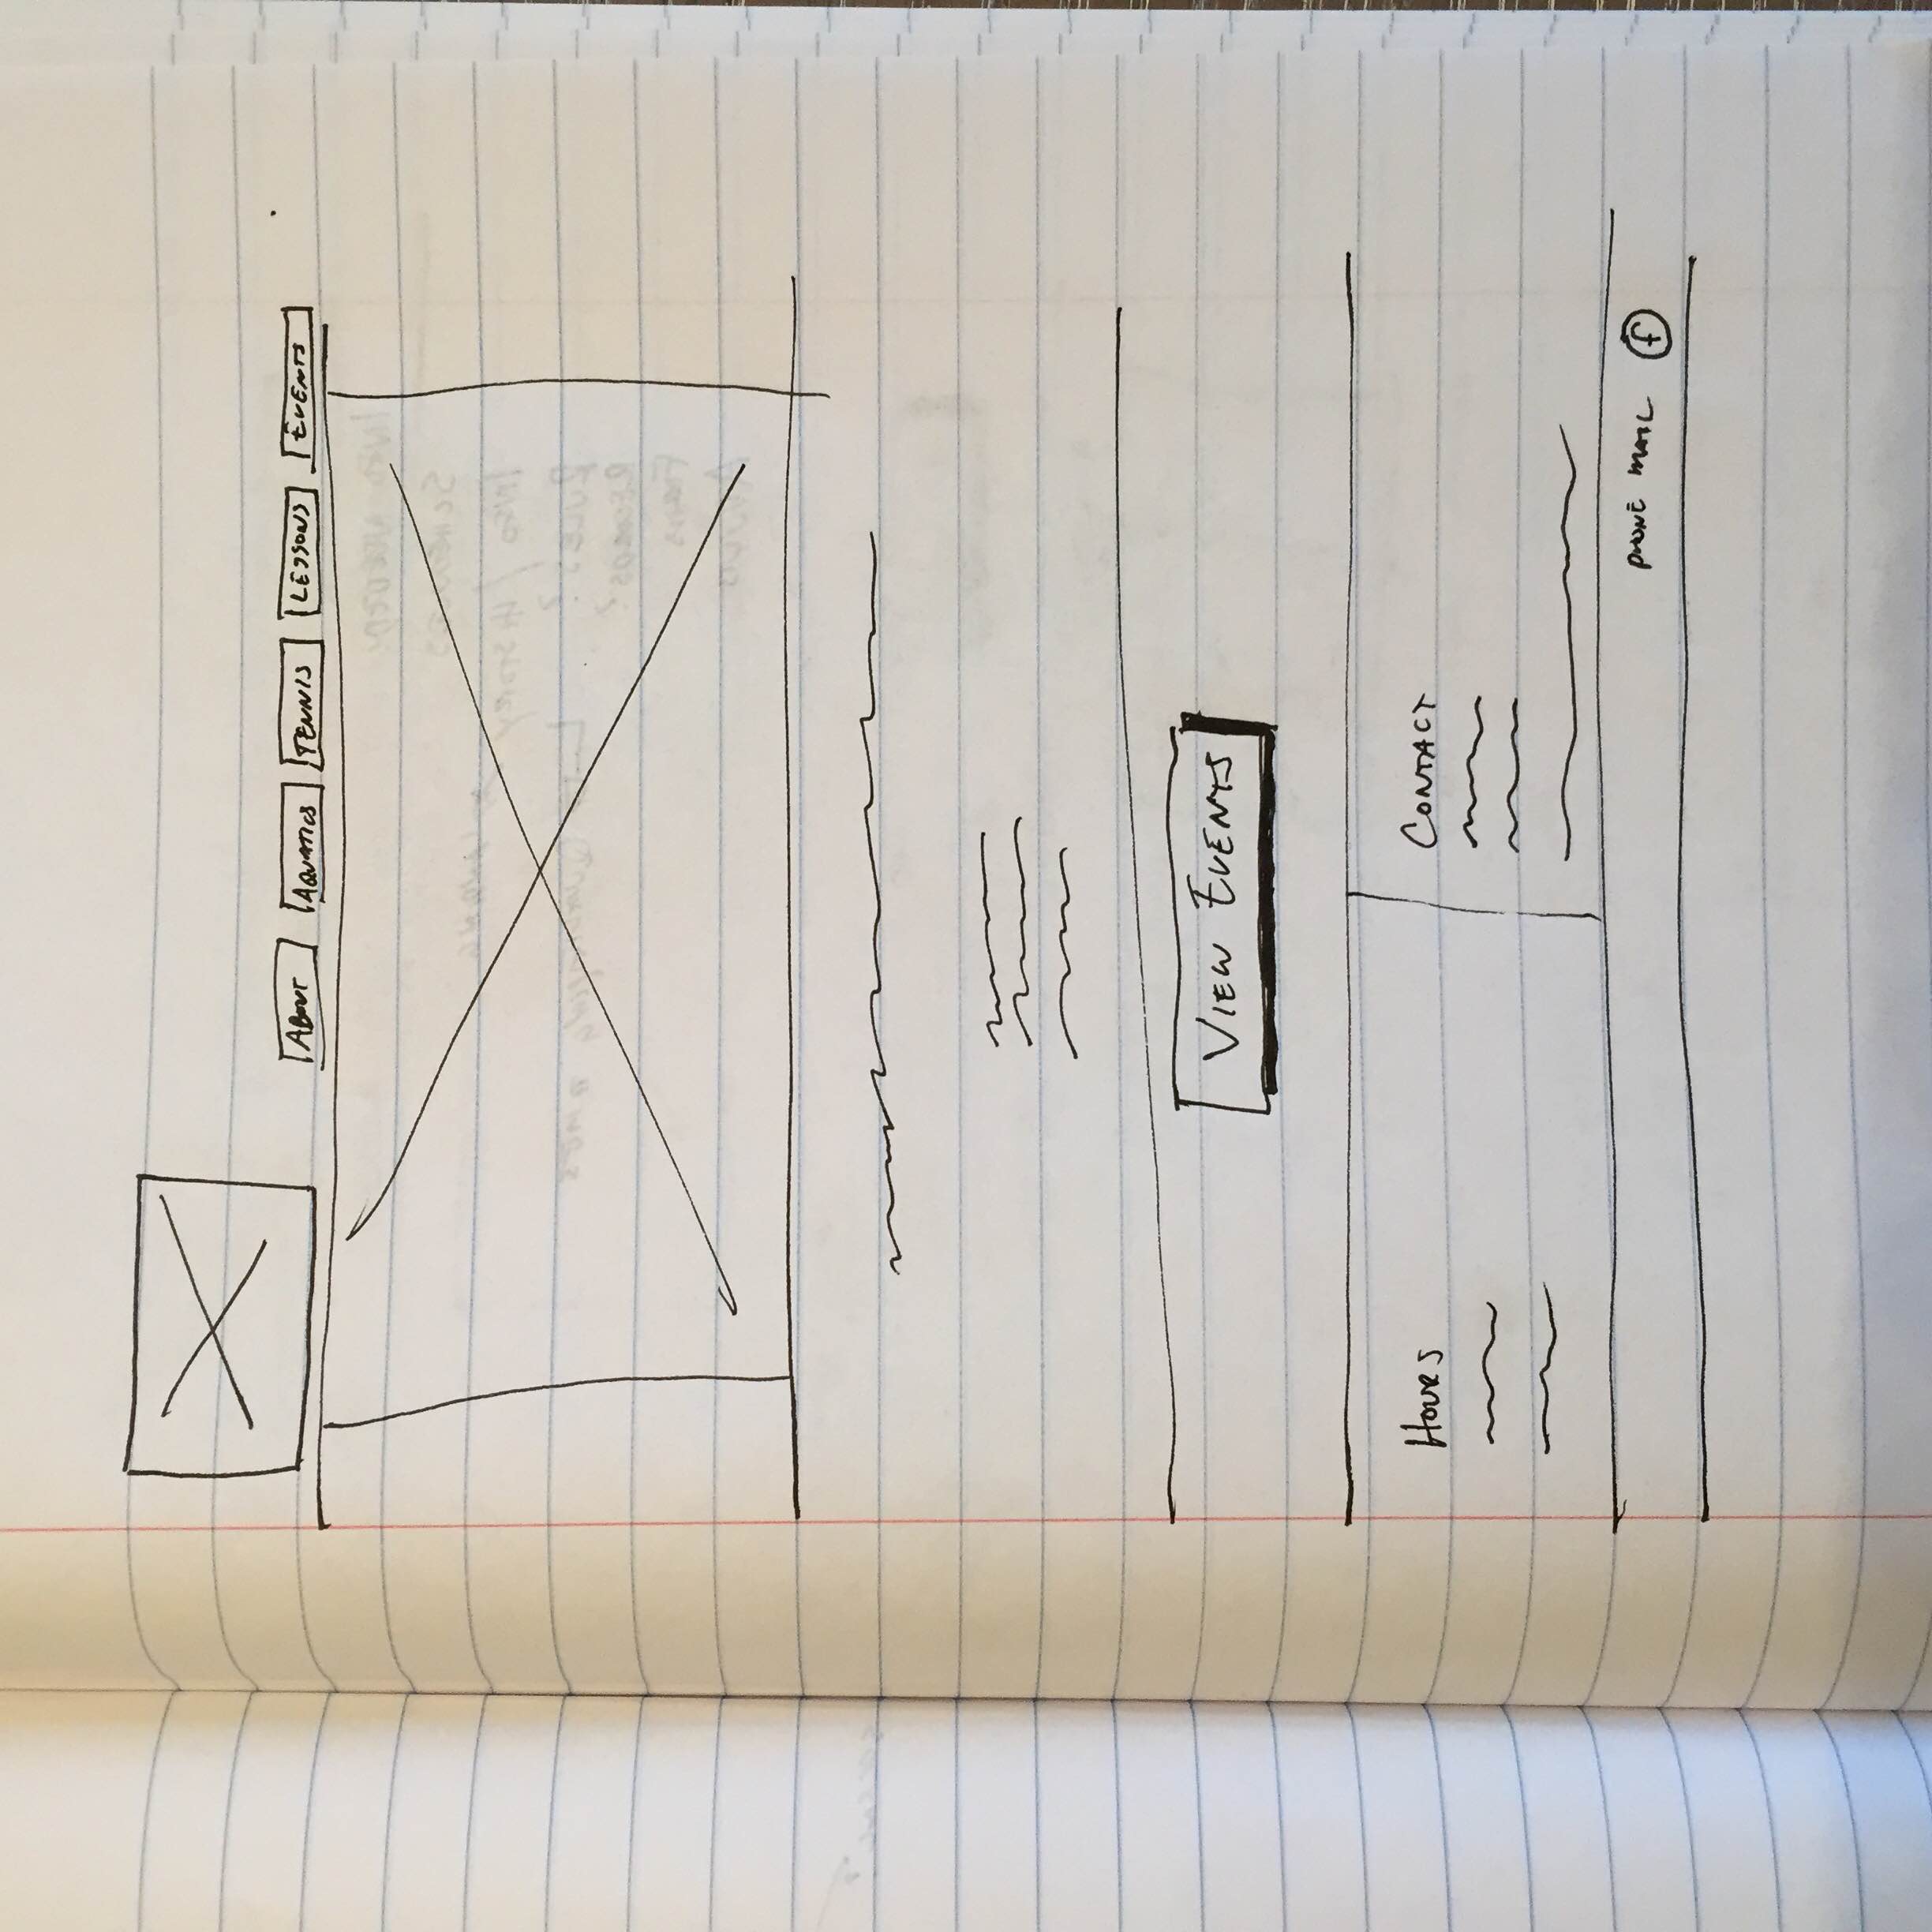 ABOUT AQUATICS TENNIS LESSONS EVENTS
VIEW EVENTS
HOURS
CONTACT
PHONE MAIL f